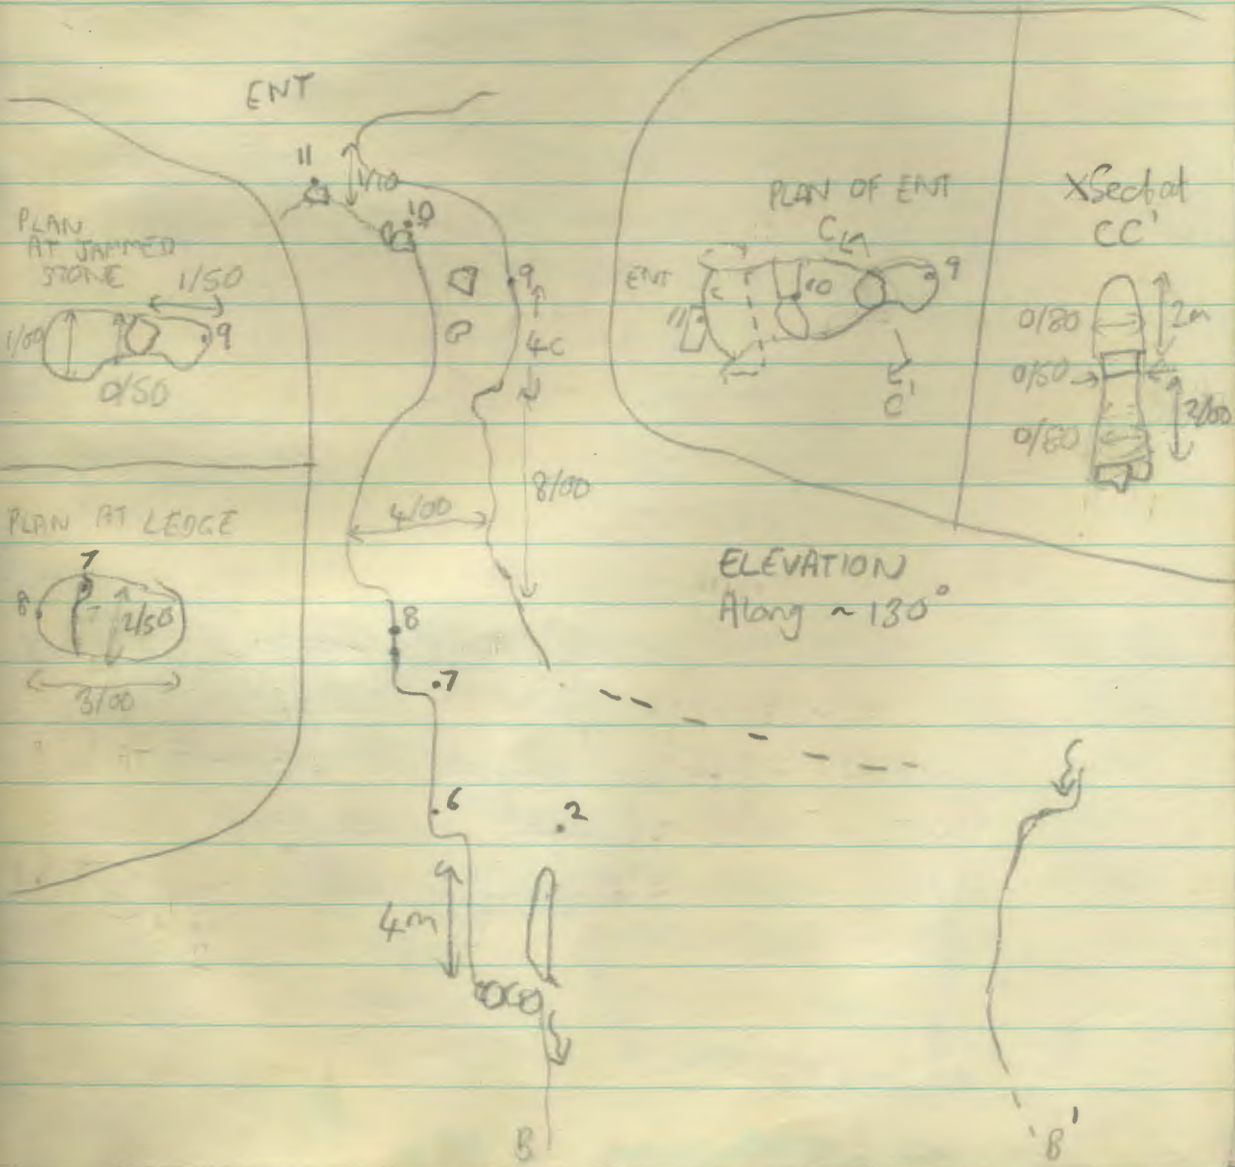 ENT
11
1/10
10
9
4c
8/00
4/00
8
7
6
2
4m
B
B'
PLAN
AT JAMMED
STONE
1/50
1/00
9
0/50
PLAN AT LEDGE
7
8
7
2/50
3/00
AT
PLAN OF ENT
C
ENT
9
10
11
C'
XSect at
CC'
0/80
2m
0/50
2/00
0/80
ELEVATION
Along ~130°